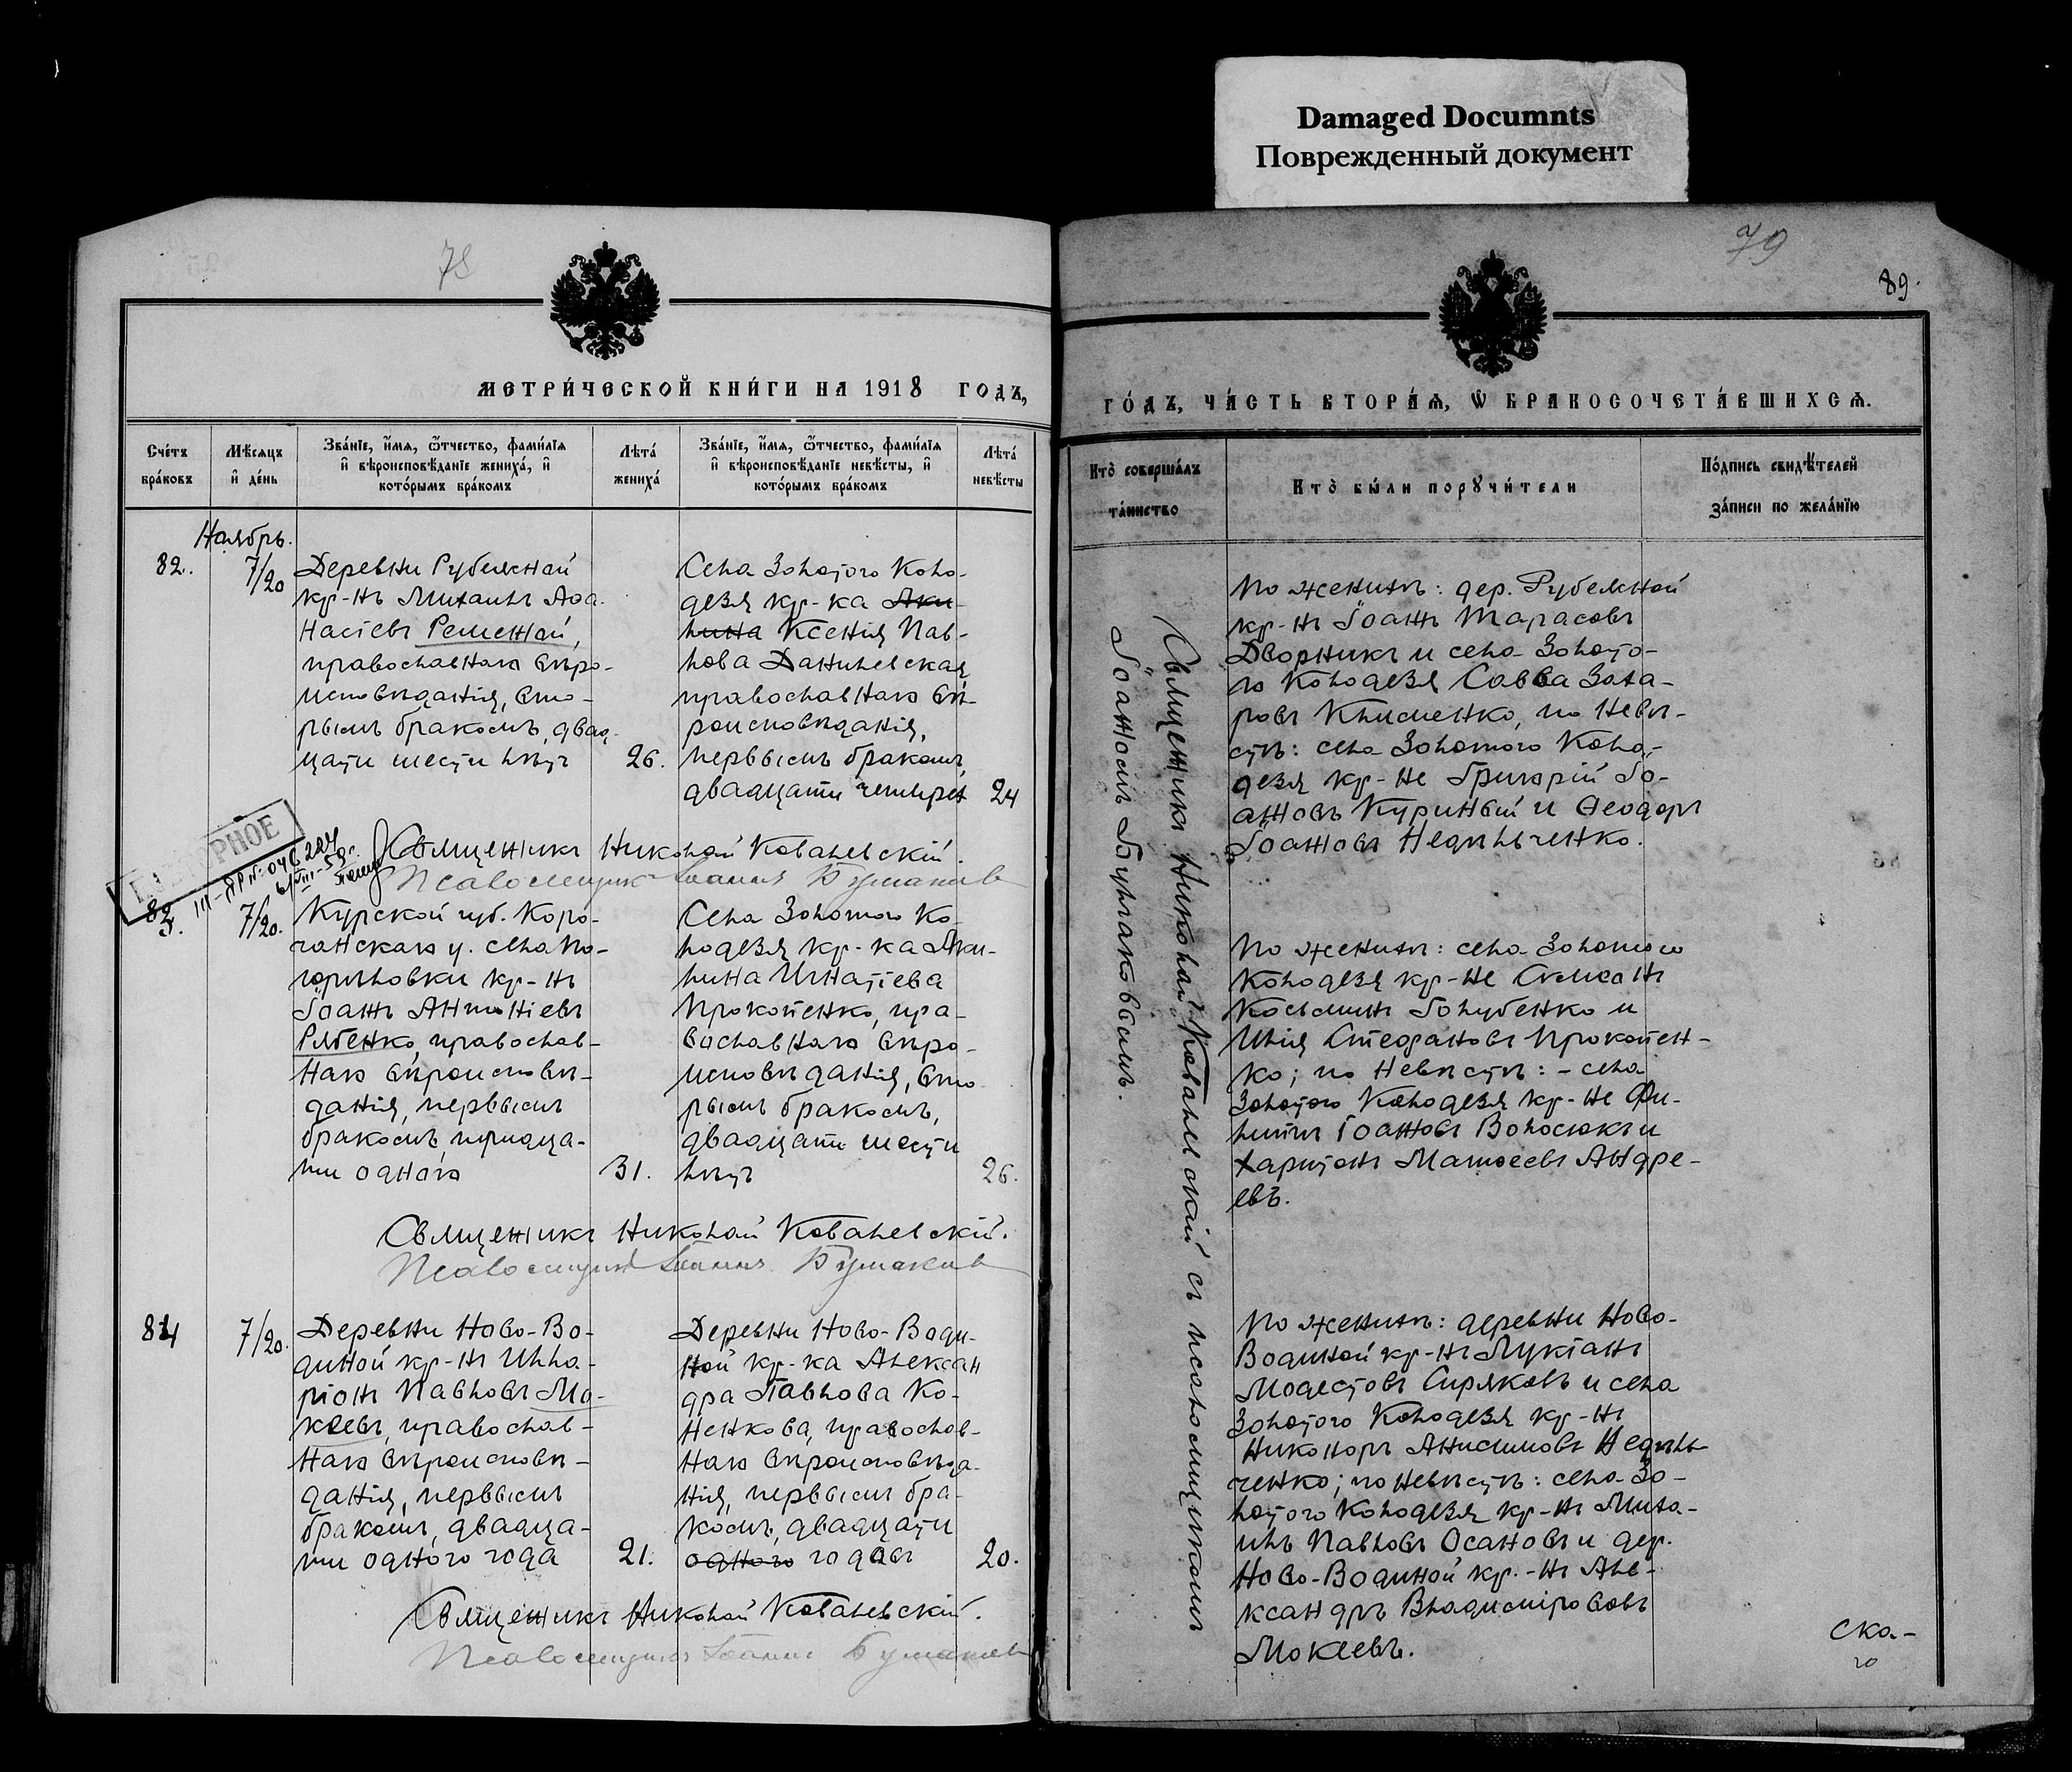 Damaged Documnts
Поврежденный документ
78
МЕТРИ́ЧЕСКОЙ КНИ́ГИ НА 1918 ГОДЪ,
Сче́тъ бра́ковъ
Мѣ́сяцъ и҆ де́нь
Зва́нїе, и҆́мѧ, ѻ҆́тчество, фами́лїѧ и҆ вѣроисповѣ́данїе жениха́, и҆ кото́рымъ бра́комъ
Лѣта́ жениха́
Зва́нїе, и҆́мѧ, ѻ҆́тчество, фами́лїѧ и҆ вѣроисповѣ́данїе невѣ́сты, и҆ кото́рымъ бра́комъ
Лѣта́ невѣ́сты
Ноябрь.
82.
7/20
Деревни Рубежной
кр-нъ Михаилъ Аѳа-
насіевъ Ременной,
православнаго вѣро-
исповѣданія, вто-
рымъ бракомъ, двад-
цати шести лѣтъ
26.
Села Золотого Коло-
дезя кр-ка Аки-
лина Ксенія Пав-
лова Данилевская
православнаго вѣ-
роисповѣданія,
первымъ бракомъ,
двадцати четырех
24
Священникъ Николай Ковалевскій.
Псаломщикъ Іоаннъ Бушаков
83.
7/20.
Курской губ. Коро-
чанскаго у. села По-
горѣловки кр-нъ
Іоаннъ Антоніевъ
Рябенко, православ-
наго вѣроисповѣ-
данія, первымъ
бракомъ, тридца-
ти одного
31.
Села Золотого Ко-
лодезя кр-ка Аки-
лина Игнатіева
Прокопенко, пра-
вославнаго вѣро-
исповѣданія, вто-
рымъ бракомъ,
двадцати шести
лѣтъ
26.
Священникъ Николай Ковалевскій.
Псаломщикъ Іоаннъ Бушаков
84
7/20.
Деревни Ново-Во-
диной кр-нъ Илла-
ріонъ Павловъ Мо-
кеевъ, православ-
наго вѣроисповѣ-
данія, первымъ
бракомъ, двадца-
ти одного года
21.
Деревни Ново-Води-
ной кр-ка Алексан
дра Павлова Ко-
ненкова, православ-
наго вѣроисповѣда-
нія, первымъ бра-
комъ, двадцати
одного годовъ
20.
Священникъ Николай Ковалевскій.
Псаломщикъ Іоаннъ Бушаков
79
89.
ГО́ДЪ, ЧА́СТЬ ВТОРА́Ѧ, Ѡ҆ БРАКОСОЧЕТА́ВШИХСѦ.
Кто̀ соверша́лъ та́инство
Кто̀ бы́ли порꙋчи́тели
По́дпись свидѣ́телей за́писи по жела́нїю
Священникъ Николай Ковалевскій съ псаломщикомъ
Іоанномъ Бушаковымъ.
По женихѣ: дер. Рубежной
кр-нъ Іоаннъ Тарасовъ
Дворникъ и села Золото-
го Колодезя Савва Заха-
ровъ Клименко, по невѣ-
стѣ: села Золотого Коло-
дезя кр-не Григорій Іо-
анновъ Куринный и Ѳеодоръ
Іоанновъ Недѣльченко.
По женихѣ: села Золотого
Колодезя кр-не Симеонъ
Косьминъ Голубенко и
Илія Стефановъ Прокопен-
ко; по невѣстѣ: - села
Золотого Колодезя кр-не Фи-
липпъ Іоанновъ Волосюкъ и
Харитонъ Матѳеевъ Андре-
евъ.
По женихѣ: деревни Ново-
Водиной кр-нъ Лукіанъ
Модестовъ Сиряковъ и села
Золотого Колодезя кр-нъ
Никоноръ Анисимовъ Недѣль-
ченко; по невѣстѣ: села Зо-
лотого Колодезя кр-нъ Миха-
илъ Павловъ Осановъ и дер.
Ново-Водиной кр.-нъ Але-
ксандръ Владиміровъ
Мокеевъ.
Ска-